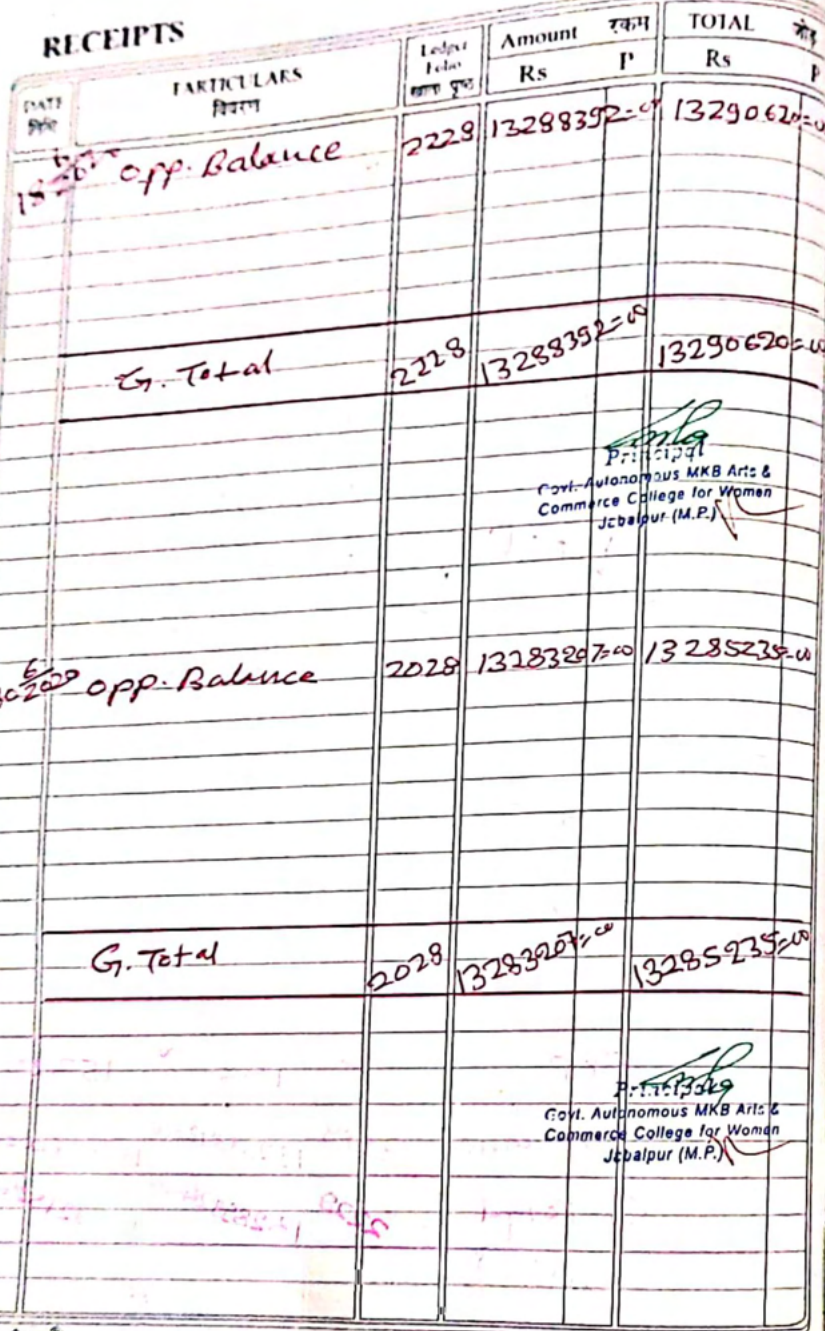 RECEIPTS
DATE PARTICULARS Ledger Folio Amount रकम TOTAL जोड़
तिथि विवरण खाता पृष्ठ Rs P Rs P
opp. Balance 2228 13288392=00 13290620=00
G. Total 2228 13288392=00 13290620=00
Principal
Govt. Autonomous MKB Arts &
Commerce College for Women
Jabalpur (M.P.)
opp. Balance 2028 13283207=00 13285235=00
G. Total 2028 13283207=00 13285235=00
Principal
Govt. Autonomous MKB Arts &
Commerce College for Women
Jabalpur (M.P.)